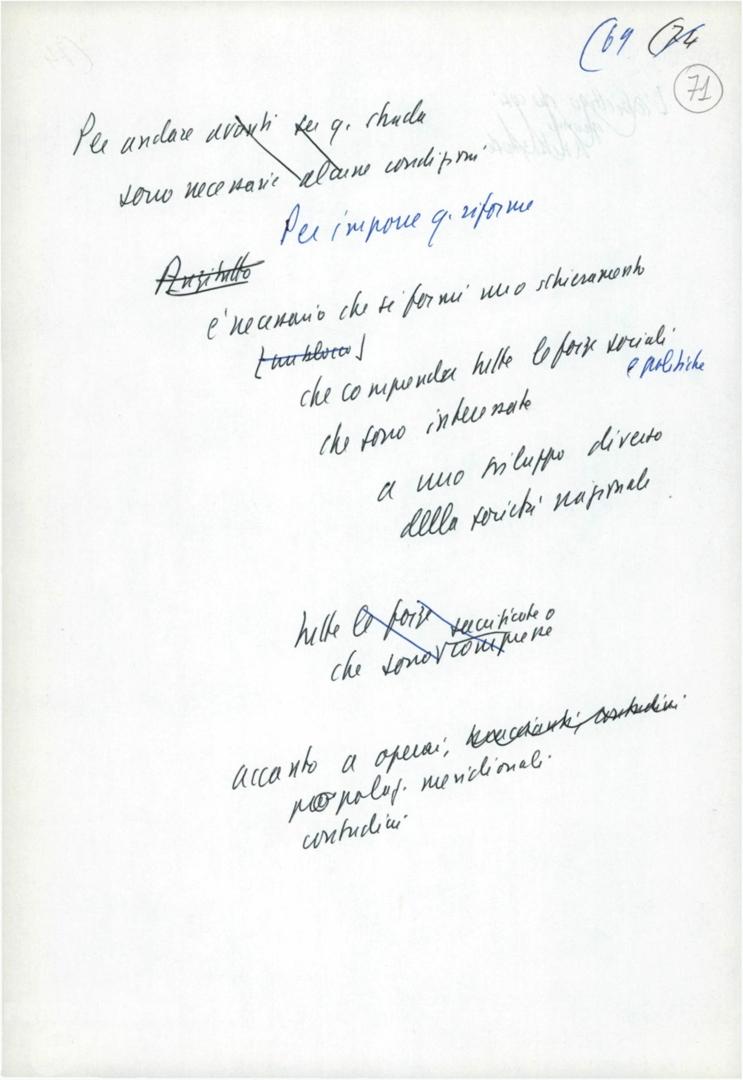 (69 (74
71
Per andare avanti su q. strada
sono necessarie alcune condizioni
Per imporre q. riforme
Anzitutto
è necessario che si formi uno schieramento
[un blocco]
che comprenda tutte le forze sociali
e politiche
che sono interessate
a uno sviluppo diverso
della società nazionale
tutte le forze
sacrificate o
che sono compresse
accanto a operai, braccianti, contadini
popolaz. meridionali
contadini